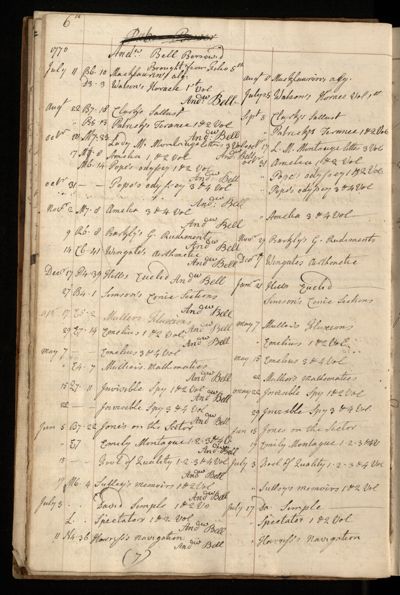 6th
1770 Andw Bell Borrow'd
Brought from Folio 5th
July 11 B6.10 Macklaurin's alg.
augt 8 Macklaurins alg.
D3.3 Watson's Horace 1st Vol
July 25 Watson's Horace Vol 1st
Andw Bell
Augt 22 B7.18 Clark's Sallust
Sept 8 Clark's Sallust
B5.13 Patrick's Terence 1&2 Vol
Patrick's Terence 1&2 Vol
Andw Bell
Lady M. Montague letters 3 Vol
octr 17 L. M. Montague letter 3 Vol
Andw Bell
17 M7.8 Amelia 1,&2 Vol
octr 31 Amelia 1,&2 Vol
M6.14 Pope's odyssey 1&2 Vol
Pope's odyssey 1&2 Vol
Andw Bell
octr 31 — Pope's odyssey 3&4 Vol
Pope's odyssey 3&4 Vol
Andw Bell
Novr 2 M7.8 Amelia 3&4 Vol
Amelia 3&4 Vol
Andw Bell
9 Barkly's G. Rudiments
Novr 27 Barkly's G. Rudiments
Andw Bell
14 E6.41 Wingate's Arithmetic
Wingates Arithmetic
Andw Bell
Decr 17 Hills Euclid
Hills Euclid
Andw Bell
27 B4.1 Simson's Conic Sections
Simson's Conic Sections
Andw Bell
Muller's Fluxions
may 7 Muller's Fluxions
Andw Bell
E7.14 Emelius 1&2 Vol
Emelius 1&2 Vol
Andw Bell
may 7 — Emelius 3&4 Vol
may 15 Emelius 3&4 Vol
E4.7 Muller's mathematics
22 Muller's mathematics
Andw Bell
15 E7.11 Invisible Spy 1&2 Vol
may 22 Invisible Spy 1&2 Vol
Andw Bell
22 — Invisible Spy 3&4 Vol
29 Invisible Spy 3&4 Vol
Andw Bell
Jun 5 B7.22 Jones on the Sector
Jun 15 Jones on the Sector
E7 Emily Montague 1.2.3&4 V
Emily Montague 1.2.3&4 V
Andw Bell
15 Fool of Quality 1.2.3&4 Vol
July 3 Fool of Quality 1.2.3&4 Vol
Andw Bell
17 M6.4 Sulley's memoirs 1&2 Vol
Sulleys memoirs 1&2 Vol
Andw Bell
July 3 David Simple 1&2 Vo
July 17 Da. Simple
L. Spectators 1&2 Vol
Spectator 1&2 Vol
Andw Bell
11 H4.36 navigation
navigation
Andw Bell
(7)